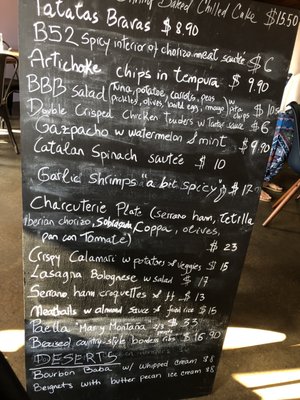 Baked Chilled Cake $15.50
Tatatas Bravas $8.90
B52 Spicy interior of chorizo meat sautée $6
Artichoke chips in tempura $9.90
BBB salad Tuna, potatoes, carrots, peas
pickles, olives, boiled egg, & mayo w pita chips $10
Double Crisped Chicken tenders w Tartar sauce $6
Gazpacho w watermelon & mint $9.90
Catalan Spinach sautée $10
Garlic shrimps "a bit spicy" $17
Charcuterie Plate (Serrano ham, Tetilla
Iberian chorizo, Sobrasada, Coppa, olives,
pan con Tomate) $23
Crispy Calamari w potatoes & veggies $15
Lasagna Bolognese w salad $17
Serrano ham croquettes $13
Meatballs w almond sauce & rice $15
Paella Mar y Montaña 2/3 $33
country style ribs $16.90
DESERTS
Bourbon Baba w/ whipped cream $8
Beignets with butter pecan ice cream $8